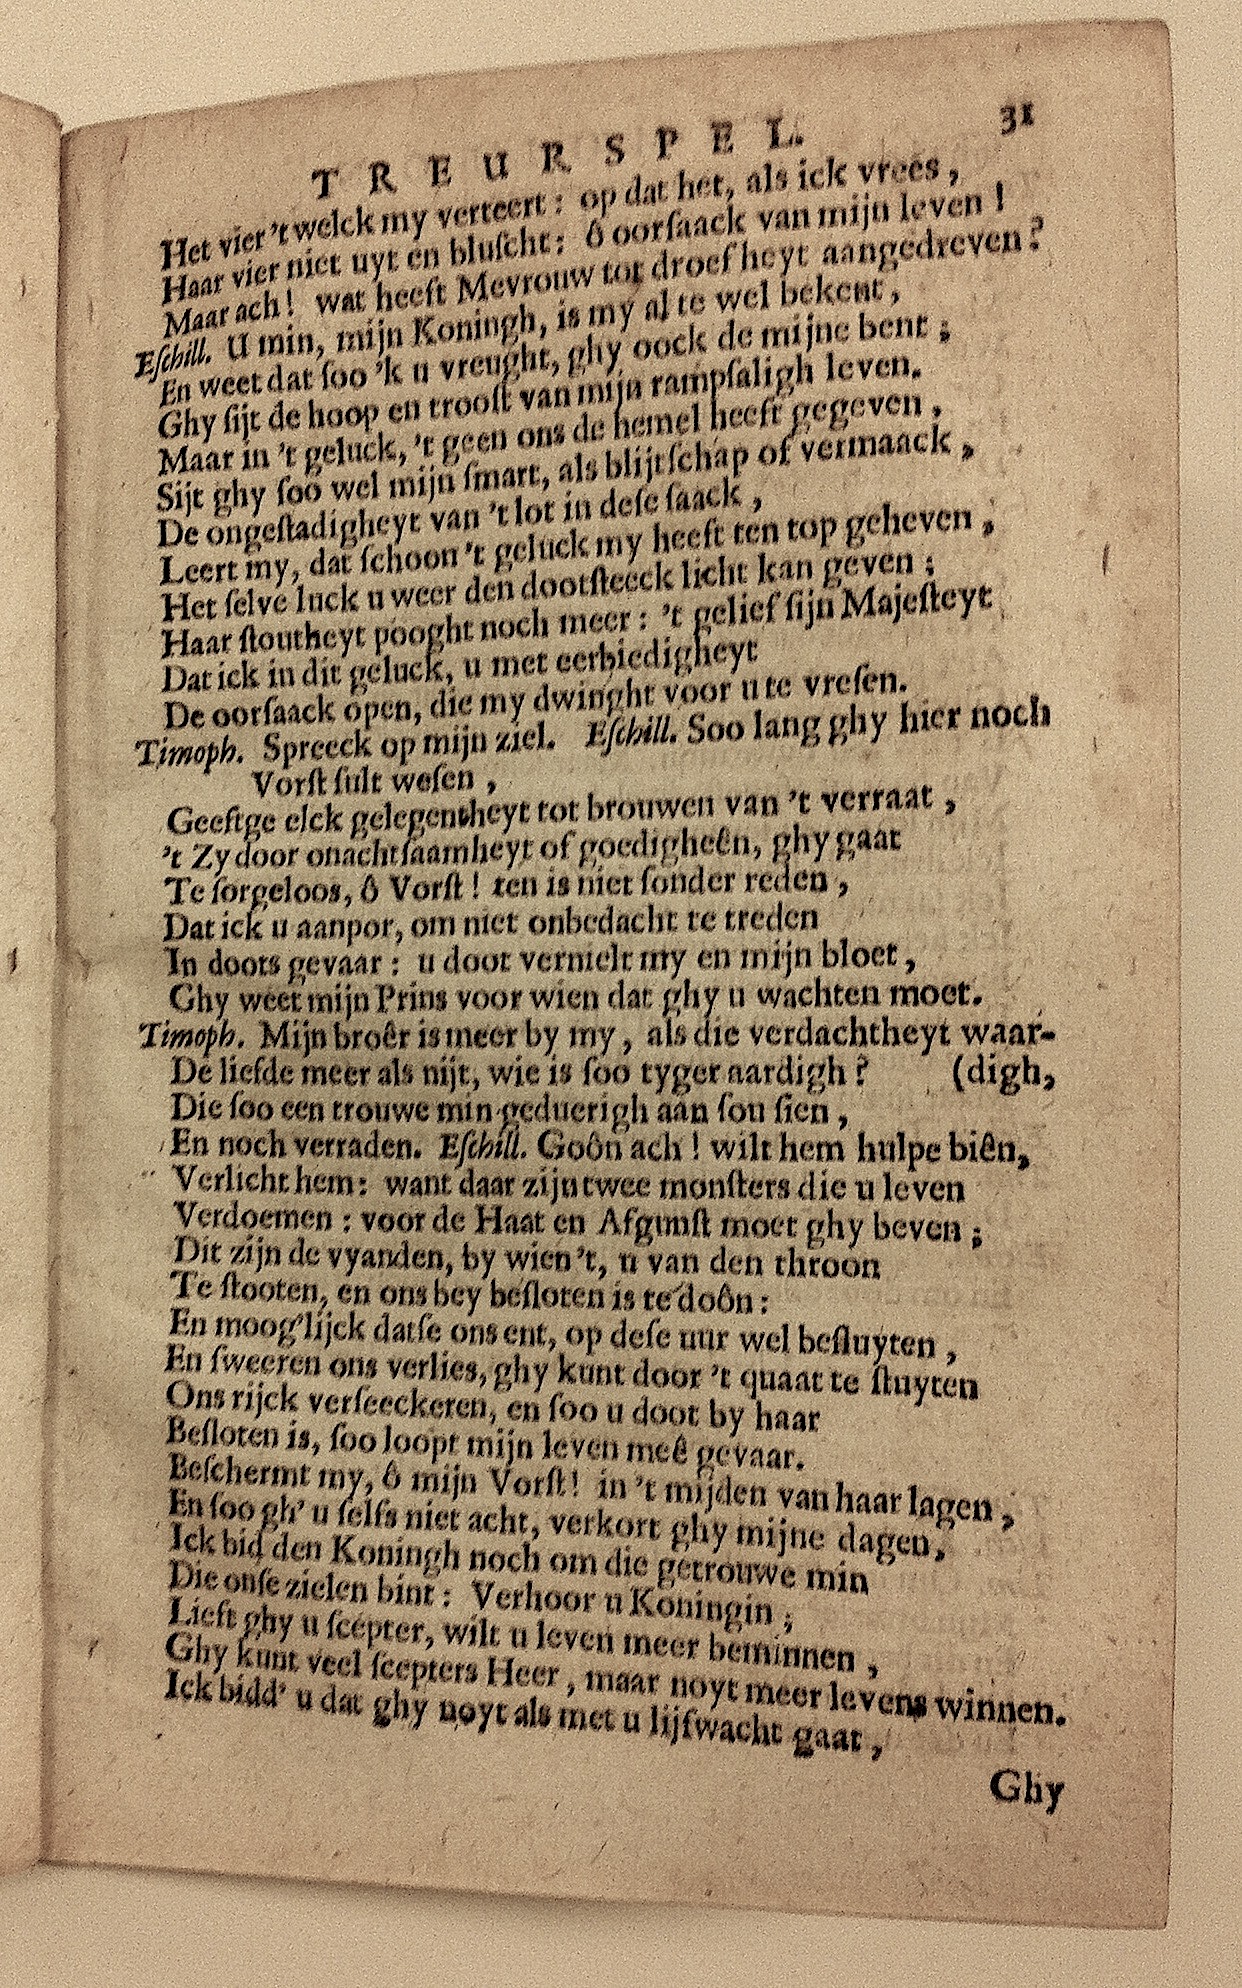 TREURSPEL. 31
Het vier 't welck my verteert: op dat het, als ick vrees,
Haar vier niet uyt en bluſcht: ô oorſaack van mijn leven!
Maar ach! wat heeft Mevrouw tot droefheyt aangedreven?
Eſchill. U min, mijn Koningh, is my al te wel bekent,
En weet dat ſoo 'k u vreught, ghy oock de mijne bent;
Ghy ſijt de hoop en trooſt van mijn rampſaligh leven.
Maar in 't geluck, 't geen ons de hemel heeft gegeven,
Sijt ghy ſoo wel mijn ſmart, als blijtſchap of vermaack,
De ongeſtadigheyt van 't lot in deſe ſaack,
Leert my, dat ſchoon 't geluck my heeft ten top geheven,
Het ſelve luck u weer den dootſteeck licht kan geven;
Haar ſtoutheyt pooght noch meer: 't gelief ſijn Majeſteyt
Dat ick in dit geluck, u met eerbiedigheyt
De oorſaack open, die my dwinght voor u te vreſen.
Timoph. Spreeck op mijn ziel. Eſchill. Soo lang ghy hier noch
Vorſt ſult weſen,
Geeftge elck gelegentheyt tot brouwen van 't verraat,
't Zy door onachtſaamheyt of goedigheên, ghy gaat
Te ſorgeloos, ô Vorſt! ten is niet ſonder reden,
Dat ick u aanpor, om niet onbedacht te treden
In doots gevaar: u doot vernielt my en mijn bloet,
Ghy weet mijn Prins voor wien dat ghy u wachten moet.
Timoph. Mijn broêr is meer by my, als die verdachtheyt waar-
De liefde meer als nijt, wie is ſoo tyger aardigh? (digh,
Die ſoo een trouwe min geduerigh aan ſou ſien,
En noch verraden. Eſchill. Goôn ach! wilt hem hulpe biên,
Verlicht hem: want daar zijn twee monſters die u leven
Verdoemen: voor de Haat en Afgunſt moet ghy beven;
Dit zijn de vyanden, by wien 't, u van den throon
Te ſtooten, en ons bey beſloten is te doôn:
En moog'lijck datſe ons ent, op deſe uur wel beſluyten,
En ſweeren ons verlies, ghy kunt door 't quaat te ſtuyten
Ons rijck verſeeckeren, en ſoo u doot by haar
Beſloten is, ſoo loopt mijn leven meê gevaar.
Beſchermt my, ô mijn Vorſt! in 't mijden van haar lagen,
En ſoo gh' u ſelfs niet acht, verkort ghy mijne dagen,
Ick bid den Koningh noch om die getrouwe min
Die onſe zielen bint: Verhoor u Koningin;
Lieft ghy u ſcepter, wilt u leven meer beminnen,
Ghy kunt veel ſcepters Heer, maar noyt meer levens winnen.
Ick bidd' u dat ghy noyt als met u lijfwacht gaat,
Ghy